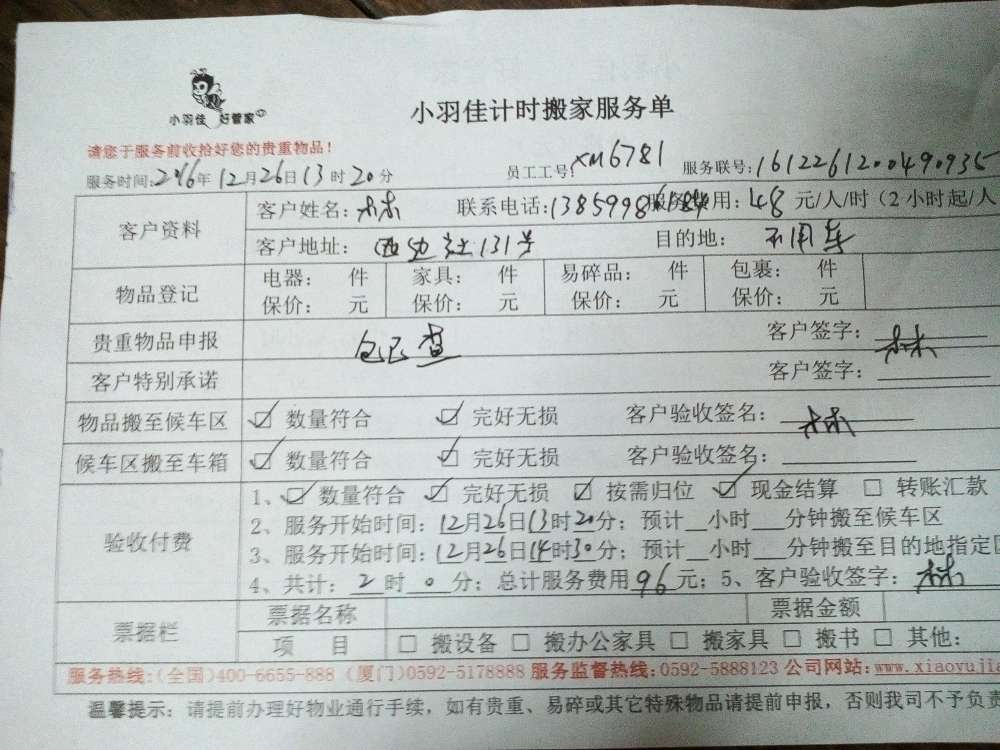 小羽佳 好管家
小羽佳计时搬家服务单
请您于服务前收拾好您的贵重物品！
服务时间:2016年12月26日13时20分 员工工号:XM6781 服务联号:1612261200490935
客户资料 客户姓名:林 联系电话:1385998 用:48元/人/时（2小时起/人
客户地址: 西边社131号 目的地: 不用车
物品登记 电器: 件 家具: 件 易碎品: 件 包裹: 件
保价: 元 保价: 元 保价: 元 保价: 元
贵重物品申报 包已查 客户签字: 林
客户特别承诺 客户签字:
物品搬至候车区 ☑ 数量符合 ☑ 完好无损 客户验收签名: 林
候车区搬至车箱 ☑ 数量符合 ☑ 完好无损 客户验收签名:
验收付费 1、☑ 数量符合 ☑ 完好无损 ☑ 按需归位 ☑ 现金结算 □ 转账汇款
2、服务开始时间:12月26日13时20分；预计__小时___分钟搬至候车区
3、服务开始时间:12月26日14时30分；预计__小时___分钟搬至目的地指定
4、共计: 2 时 0 分；总计服务费用96元；5、客户验收签字: 林
票据栏 票据名称 票据金额
项 目 □ 搬设备 □ 搬办公家具 □ 搬家具 □ 搬书 □ 其他:
服务热线:(全国)400-6655-888 (厦门)0592-5178888 服务监督热线:0592-5888123 公司网站:www.xiaoyujia
温馨提示: 请提前办理好物业通行手续，如有贵重、易碎或其它特殊物品请提前申报，否则我司不予负责